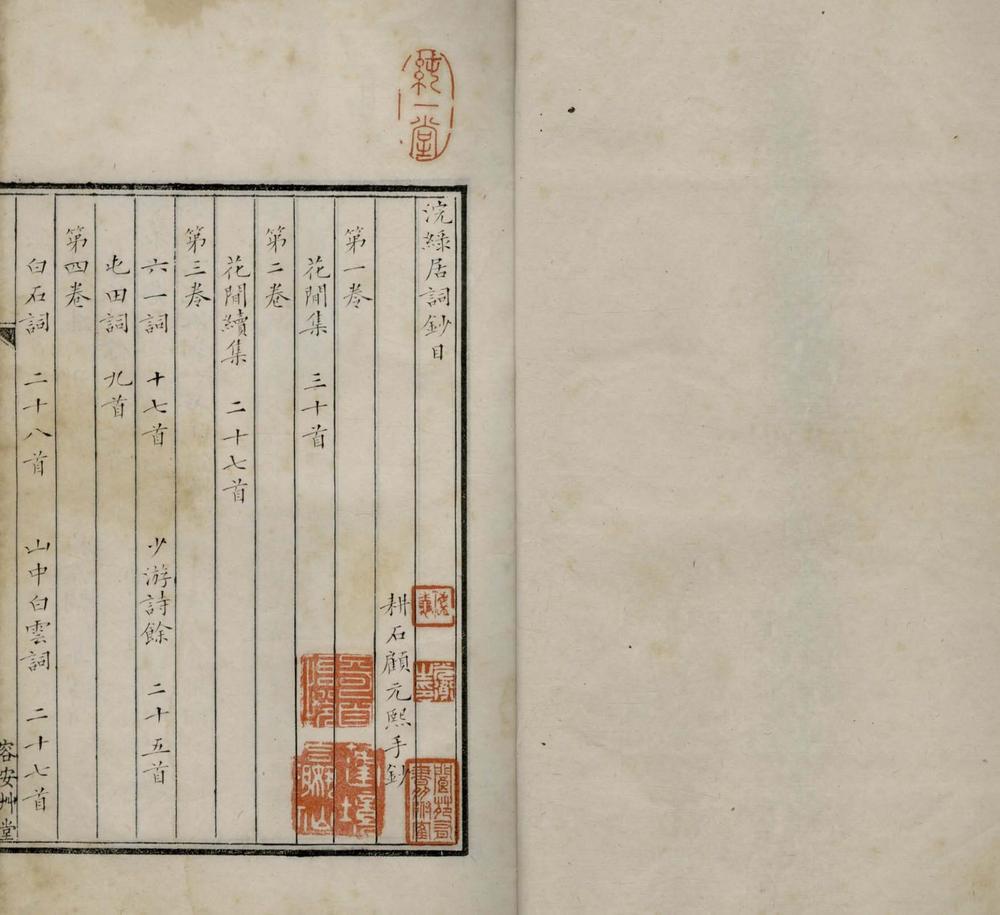 純一堂
浣綠居詞鈔目
耕石顧元熙手鈔
第一卷
花間集 三十首
第二卷
花間續集 二十七首
第三卷
六一詞 十七首 少游詩餘 二十五首
屯田詞 九首
第四卷
白石詞 二十八首 山中白雲詞 二十七首
容安艸堂